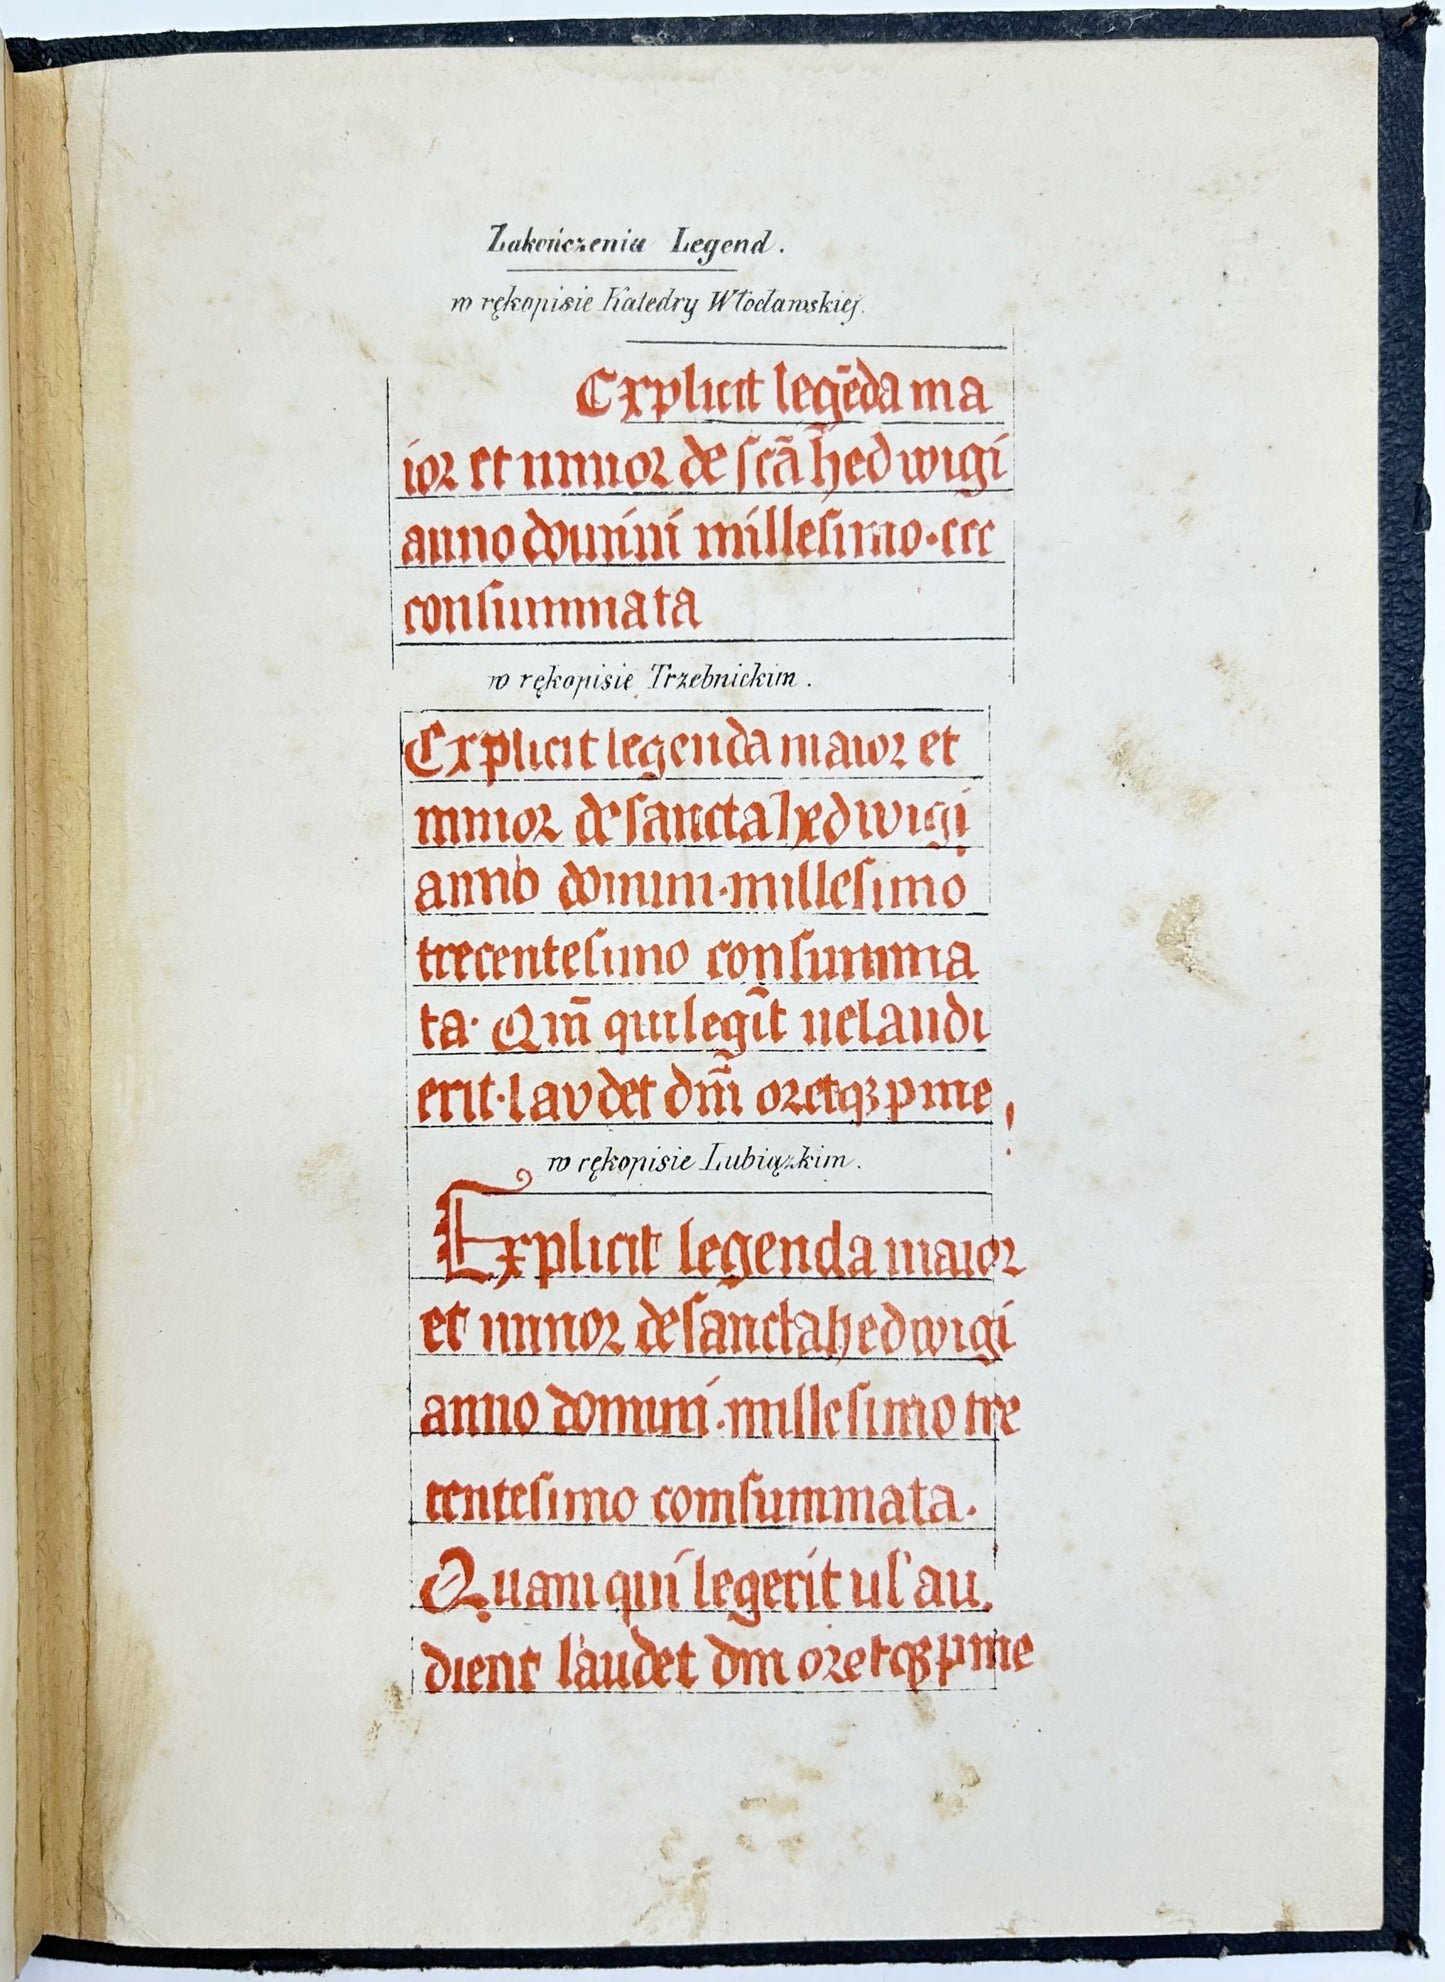 Zakończenia Legend.
w rękopisie Katedry Włocławskiej.
Explicit legēda ma
ior et minor de scā hedwigi
anno domini millesimo·ccc
consummata
w rękopisie Trzebnickim.
Explicit legenda maior et
minor de sancta hedwigi
anno domini·millesimo
trecentesimo consumma
ta· Qm̄ qui legīt uel audi
erit·laudet dm̄ oretqꝫ p me
w rękopisie Lubiązkim.
Explicit legenda maior
et minor de sancta hedwigi
anno domini·millesimo tre
centesimo comsummata.
Quam qui legerit ul' au.
dient laudet dm oretqꝫ p me